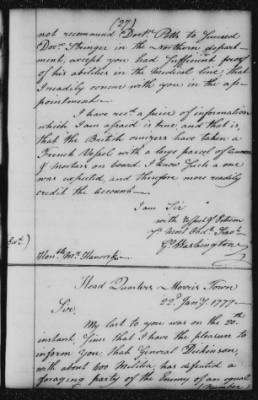 (27)
not recommend Doctr. Potts to succeed
Doctr. Stringer in the Northern depart-
ment, except you had sufficient proof
of his abilities in the Medical line, that
I readily concur with you in the ap-
pointment.
I have recd. a piece of information
which I am afraid is true, and that is,
that the British cruizers have taken a
French Vessel with a large parcel of Cannon
& Mortars on board. I know such a one
was expected, and therefore more readily
credit the account.
I am Sir
with Respect & Esteem
Yr. Most Obt. Servt.
Go. Washington
Honble. Jno. Hancock
Head Quarters Morris Town
22d. Jany. 1777.
Sir,
My last to you was on the 20th
instant. Since that I have the pleasure to
inform you, that General Dickinson,
with about 400 Militia, has defeated a
foraging party of the Enemy of an equal
number